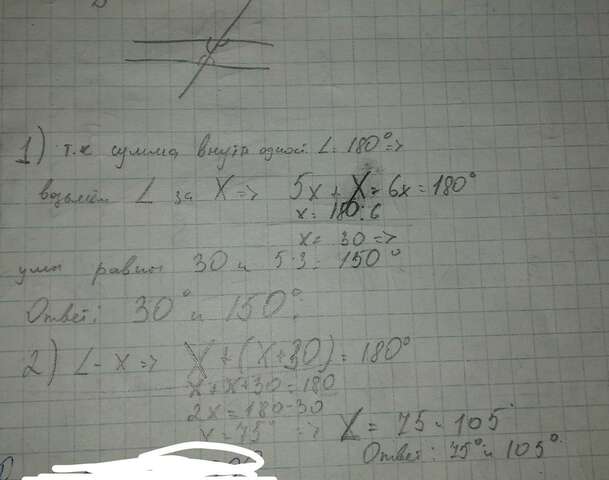 1) т.к сумма внутр одной ∠ = 180° =>
возьмём ∠ за X => 5x + X = 6x = 180°
x = 180:6
x = 30 =>
углы равны 30 и 5·3 = 150°
Ответ: 30° и 150°.
2) ∠ - x => X + (X+30) = 180°
x + x + 30 = 180
2x = 180-30
x = 75° => ∠ = 75 и 105°
Ответ: 75° и 105°.